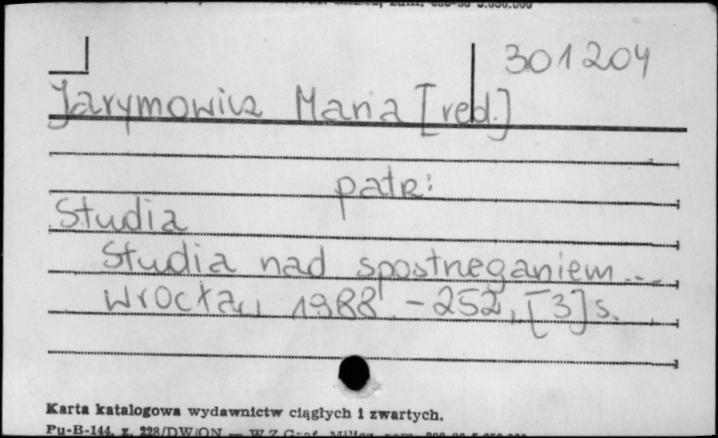 301204
Jarymowicz Maria [red.]
patrz:
Studia
Studia nad spostrzeganiem...
Wrocław 1988. - 252, [3] s.
Karta katalogowa wydawnictw ciągłych i zwartych.
Pu-B-144, z. 228/DW/ON — W.Z.Graf.